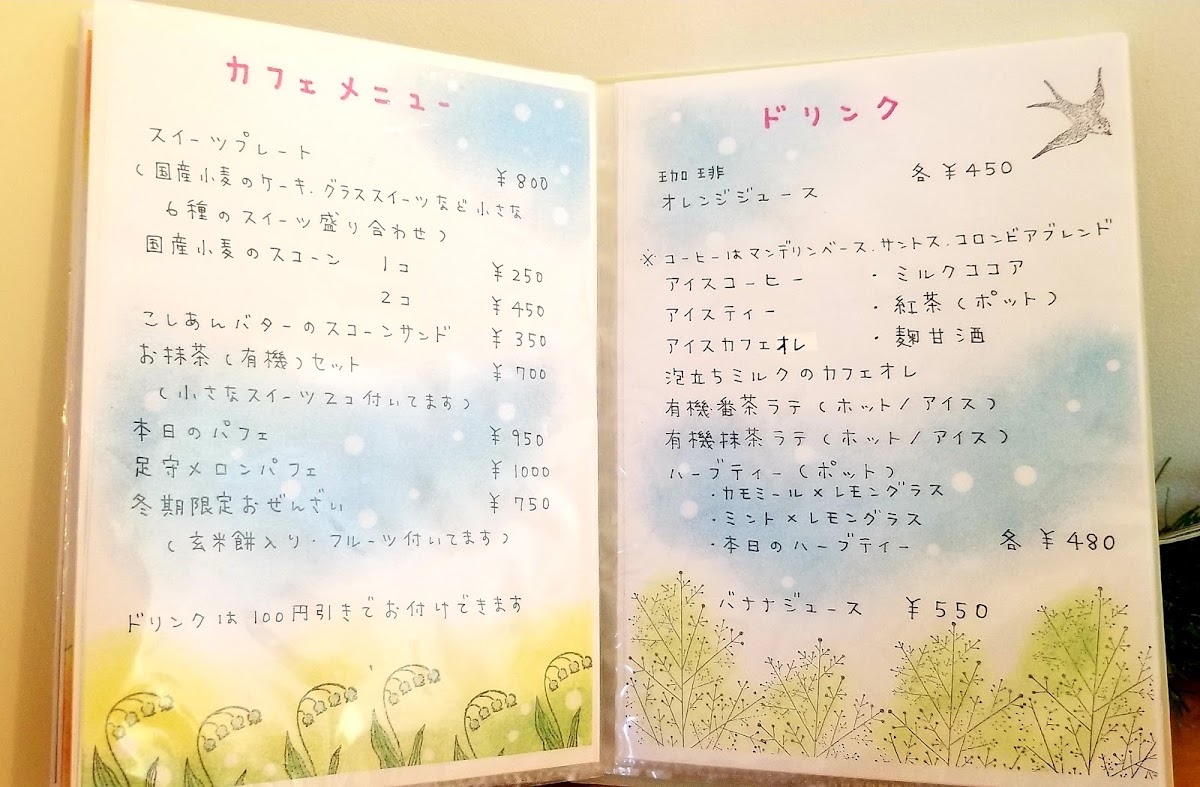 カフェメニュー
スイーツプレート
¥800
(国産小麦のケーキ、グラススイーツなど小さな
6種のスイーツ盛り合わせ)
国産小麦のスコーン 1コ ¥250
2コ ¥450
こしあんバターのスコーンサンド ¥350
お抹茶(有機)セット ¥700
(小さなスイーツ2コ付いてます)
本日のパフェ ¥950
足守メロンパフェ ¥1000
冬期限定おぜんざい ¥750
(玄米餅入り・フルーツ付いてます)
ドリンクは100円引きでお付けできます
ドリンク
珈琲 各¥450
オレンジジュース
※コーヒーはマンデリンベース、サントス、コロンビアブレンド
アイスコーヒー ・ミルクココア
アイスティー ・紅茶(ポット)
アイスカフェオレ ・麹甘酒
泡立ちミルクのカフェオレ
有機番茶ラテ(ホット/アイス)
有機抹茶ラテ(ホット/アイス)
ハーブティー(ポット)
・カモミール×レモングラス
・ミント×レモングラス
・本日のハーブティー 各¥480
バナナジュース ¥550